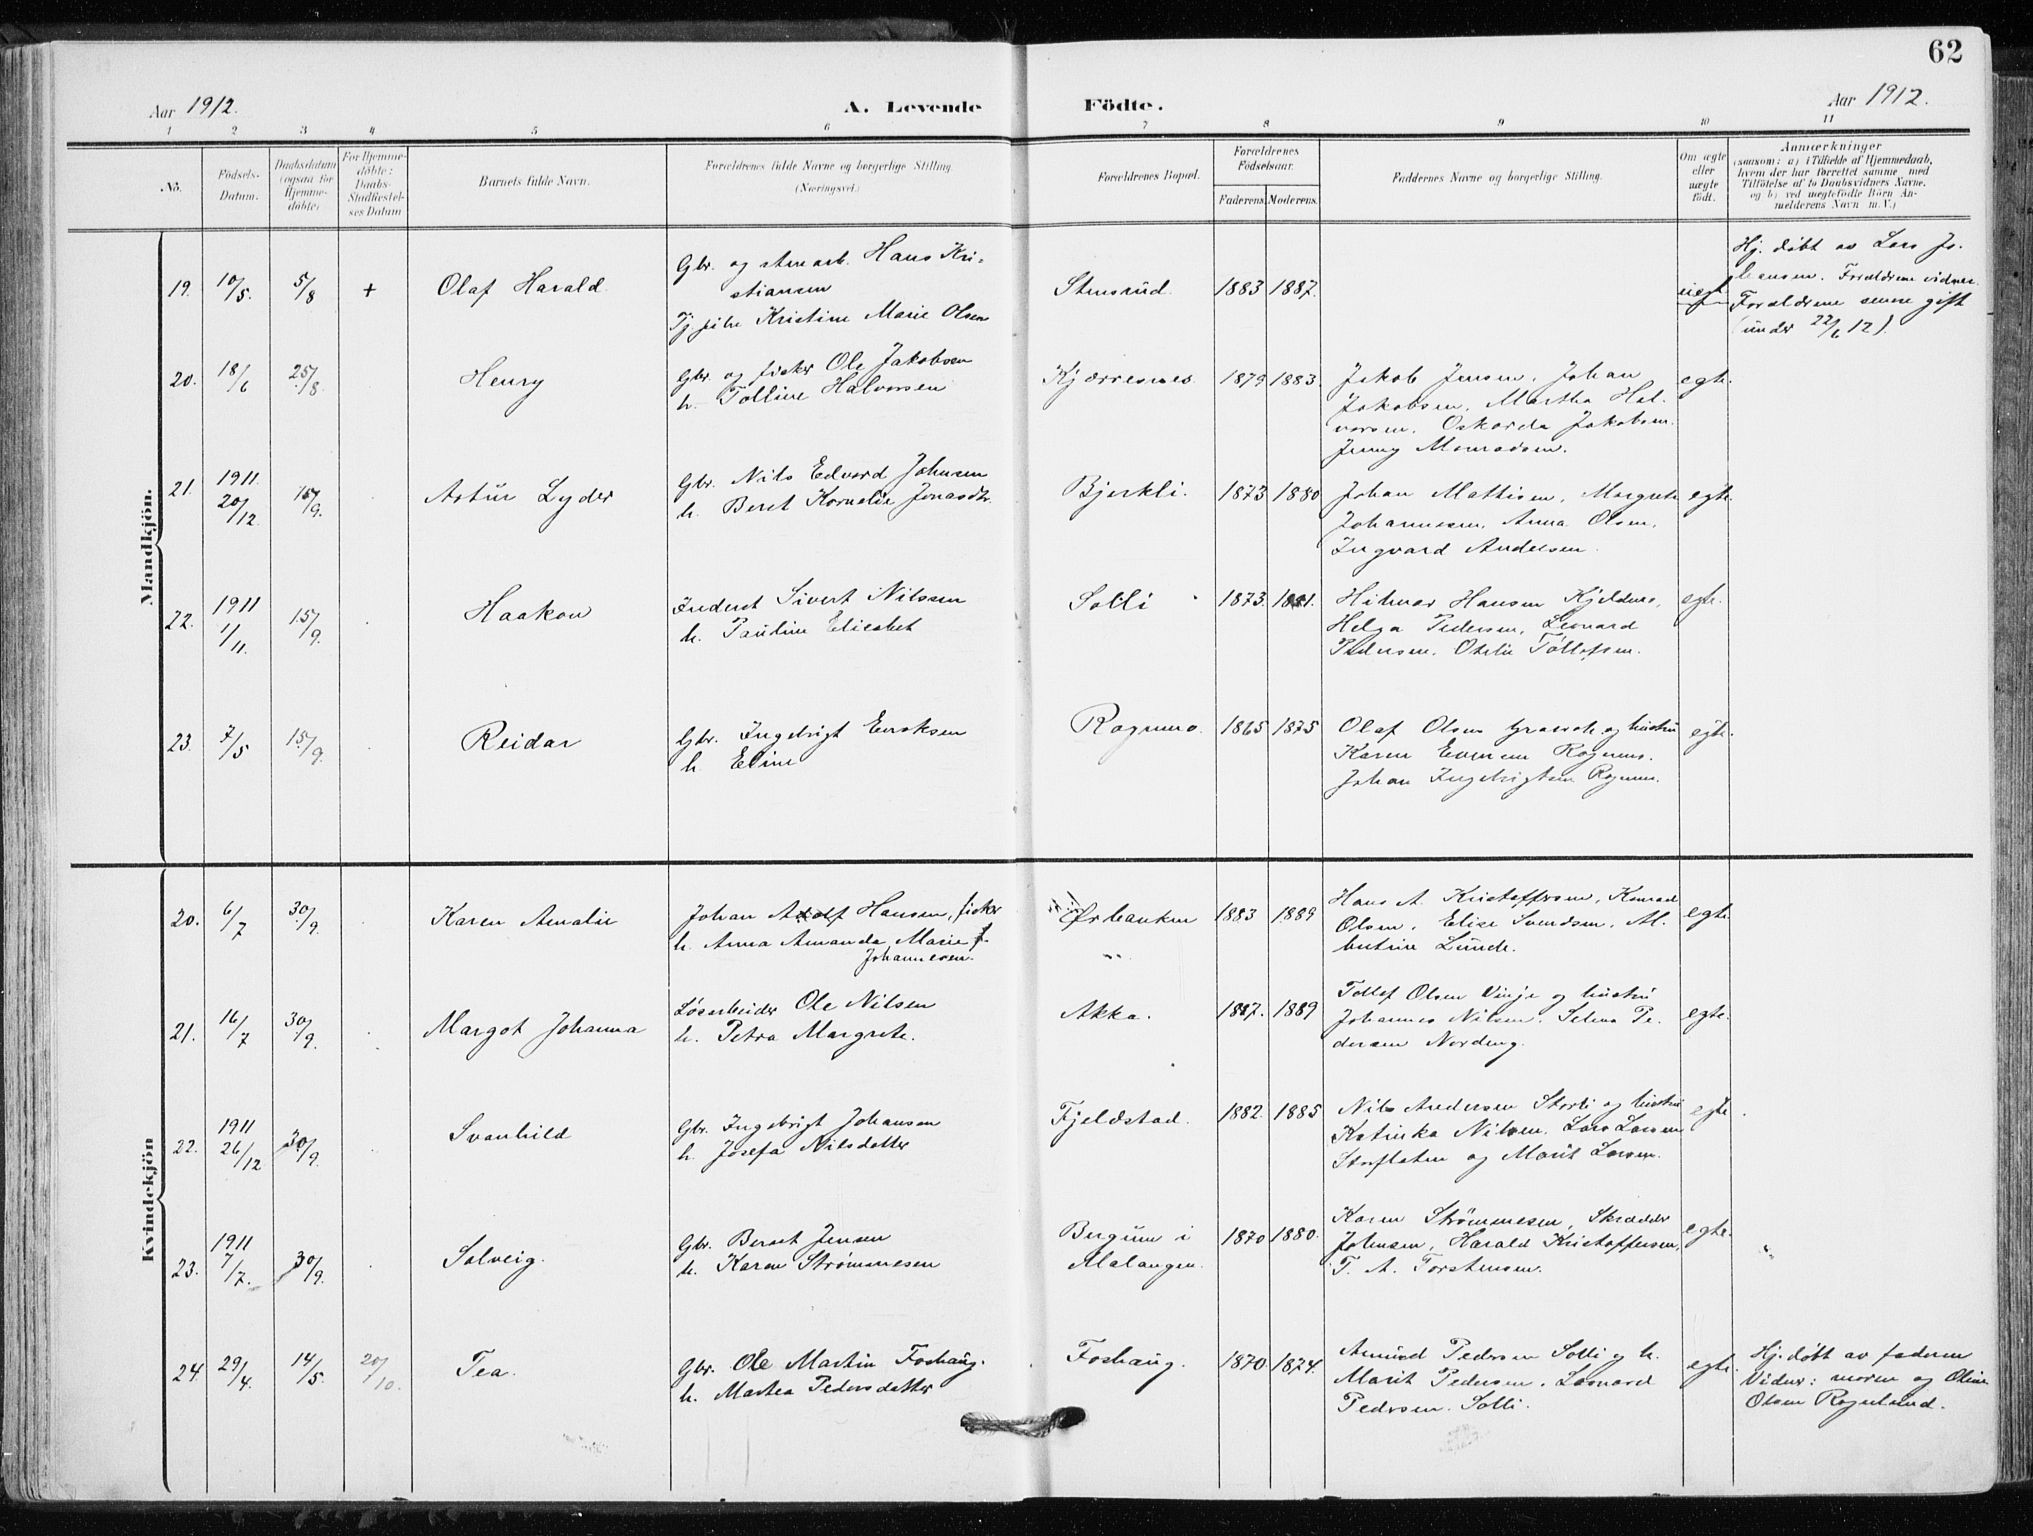 62
Aar 1912.
A. Levende Födte.
Aar 1912.
1 2 3 4 5 6 7 8 9 10 11
No.
Födsels-
Datum.
Daabsdatum
(ogsaa for
Hjemme-
döbte)
For Hjemme-
döbte:
Daabs-
Stadfæstel-
ses Datum
Barnets fulde Navn.
Forældrenes fulde Navne og borgerlige Stilling.
(Næringsvei.)
Forældrenes Bopæl.
Forældrenes
Födselsaar.
Faderens. Moderens.
Faddernes Navne og borgerlige Stilling.
Om ægte
eller
uægte
födt.
Anmærkninger
(saasom: a) i Tilfælde af Hjemmedaab,
hvem der har forrettet samme, med
Tilföielse af to Daabsvidners Navne.
og b) ved uægtefödte Börn An-
melderens Navn m. V.)
Mandkjön.
19. 10/5. 5/8 + Olaf Harald.
Gbr. og stenarb. Hans Kri-
stiansen
Tj pike Kristine Marie Olsen
Stensrud. 1883 1887. uegt.
Hj. døbt av Lars Jo-
hansen. Forældrene vidner.
Forældrene senere gift
(under 22/6 12).
20. 18/6 25/8. Henry
Gbr. og fisker Ole Jakobsen
h. Tolline Halvorsen
Kjærresnes. 1879 1883.
Jakob Jensen, Johan
Jakobsen, Martha Hal-
vorsen. Oskarda Jakobsen.
Jenny Monradsen.
egte.
21. 1911 20/12. 15/9. Artur Lyder
Gbr. Nils Edvard Johnsen
h. Beret Kornelie Jonasdtr.
Bjerkli. 1873 1880
Johan Mattisen, Margrete
Johannessen, Anna Olsen,
Ingvard Andersen.
egte.
22. 1911 1/11. 15/9. Haakon
Inderst Sivert Nilssen
h. Pauline Elisabet
Solli 1873. 1881.
Hilmar Hansen Kjeldnes,
Helga Pedersen, Leonard
Pedersen. Otelie Tollefsen.
egte.
23. 7/5 15/9. Reidar
Gbr. Ingebrigt Eriksen
h. Eline
Rognmo. 1865 1875
Olaf Olsen og hustru
Karen Evensen Rognmo.
Johan Ingebrigtsen Rognmo.
egte.
Kvindekjön
20. 6/7 30/9. Karen Amalie
Johan Adolf Hansen, fisker
h. Anna Amanda Marie
Johannesen.
Ørbanken 1883 1889
Hans A. Kristoffersen, Konrad
Olsen, Elise Svendsen, Al-
bertine Lunde.
egte.
21. 16/7 30/9. Margot Johanna
Løsarbeider Ole Nilsen
h. Petra Margrete.
Akka. 1887. 1889
Tollef Olsen Vinje og hustru
Johannes Nilsen. Selma Pe-
dersen Nordeng.
egte.
22. 1911 26/12 30/9. Svanhild
Gbr. Ingebrigt Johansen
h. Josefa Nilsdatter
Fjeldstad. 1882. 1885
Nils Andersen Storli og hustru
Katinka Nilsen, Lars Larsen
Storflaten og Marit Larsen.
egte
23. 1911 7/7. 30/9. Solveig.
Gbr. Berset Jensen
h. Karen Strømmesen
Bergum i
Malangen. 1870 1880.
Karen Strømmesen, Skrædder
Johnsen, Harald Kristoffersen,
T. A. Torstensen.
egte.
24. 29/4. 14/5 20/10. Tea.
Gbr. Ole Martin Foshaug.
h. Martea Pedersdatter
Foshaug. 1870. 1874.
Amund Pedersen Solli og h.
Marit Pedersen. Leonard
Pedersen. Solli.
egte.
Hj. døbt av faderen
Vidner: moren og Oline
Olsen Rognlund.